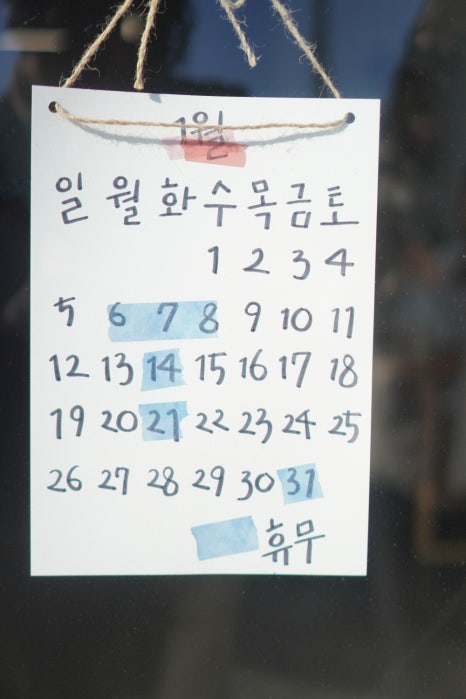 1월
일 월 화 수 목 금 토
1 2 3 4
5 6 7 8 9 10 11
12 13 14 15 16 17 18
19 20 21 22 23 24 25
26 27 28 29 30 31
휴무